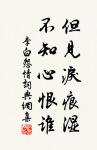 但見淚痕濕
不知心恨誰
李白怨情詞典網集